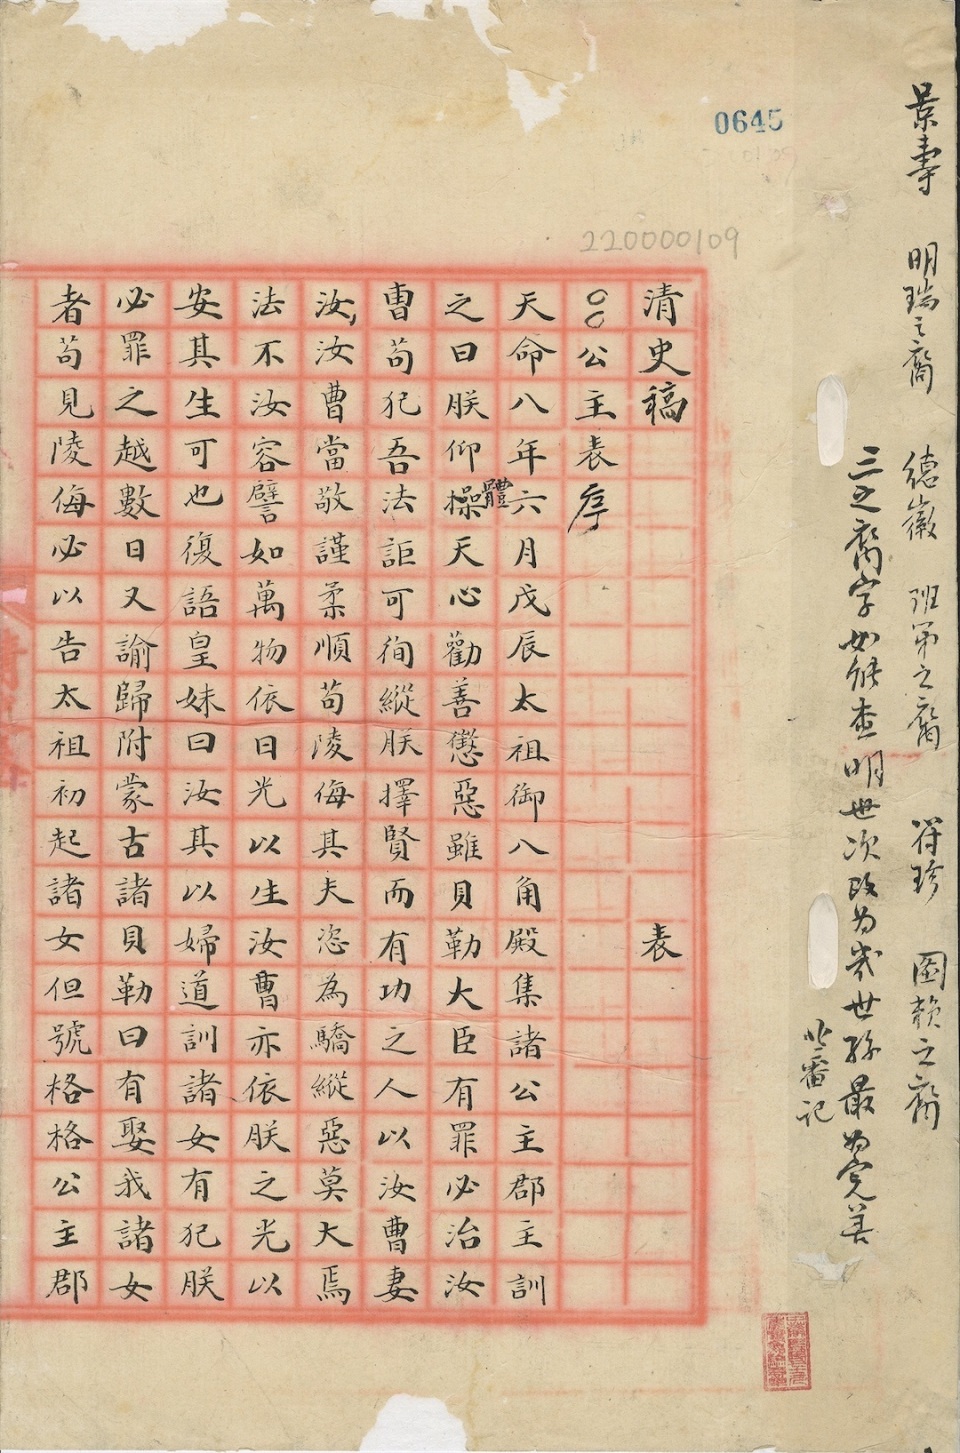 景壽 明瑞之裔 德徽 班第之裔 符珍 圖賴之裔
三之裔字如能查明世次改為幾世孫最為完善
北番記
0645
220000109
清史稿 表
公主表序
天命八年六月戊辰太祖御八角殿集諸公主郡主訓
之曰朕仰體操天心勸善懲惡雖貝勒大臣有罪必治汝
曹苟犯吾法詎可徇縱朕擇賢而有功之人以汝曹妻
汝汝曹當敬謹柔順苟陵侮其夫恣為驕縱惡莫大焉
法不汝容譬如萬物依日光以生汝曹亦依朕之光以
安其生可也復語皇妹曰汝其以婦道訓諸女有犯朕
必罪之越數日又諭歸附蒙古諸貝勒曰有娶我諸女
者苟見陵侮必以告太祖初起諸女但號格格公主郡